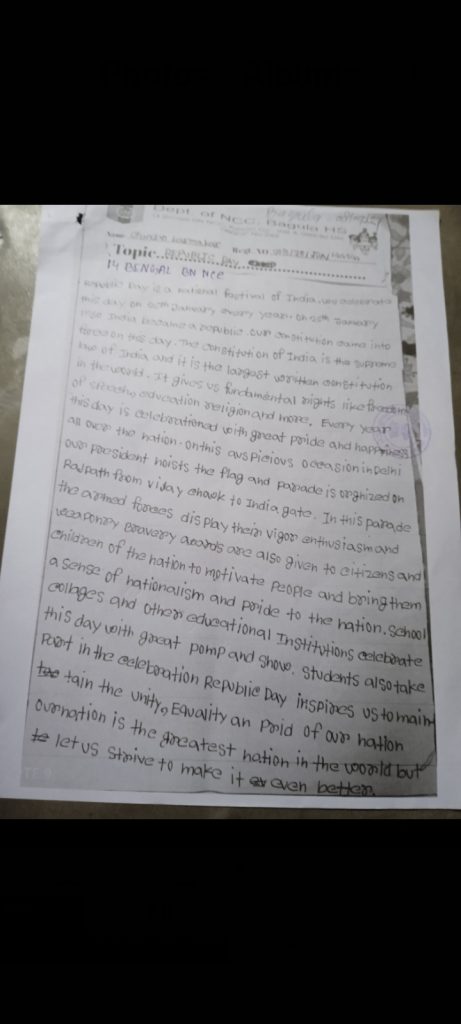 Dept. of NCC, Bagula HS
Name
Topic. REPUBLIC DAY
14 BENGAL BN NCC
Republic Day is a national festival of India. we celebrate
this day on 26th January every year. on 26th January
1950 India became a republic. our constitution came into
force on this day. The constitution of India is the supreme
law of India and it is the largest written constitution
in the world. It gives us fundamental rights like freedom
of speech, education religion and more. Every year
this day is celebrationed with great pride and happiness
all over the nation. on this auspicious occasion in Delhi
our president hoists the flag and parade is orghnized on
Rajpath from vijay chowk to India gate. In this parade
the armed forces display their vigor enthusiasm and
weaponry Bravery awards are also given to citizens and
children of the nation to motivate people and bring them
a sense of nationalism and pride to the nation. School
collages and other educational Institutions celebrate
this day with great pomp and show. Students also take
Part in the celebration Republic Day inspires us to main
tain the unity, Equality an Prid of our nation
our nation is the greatest nation in the world but
let us strive to make it even better.